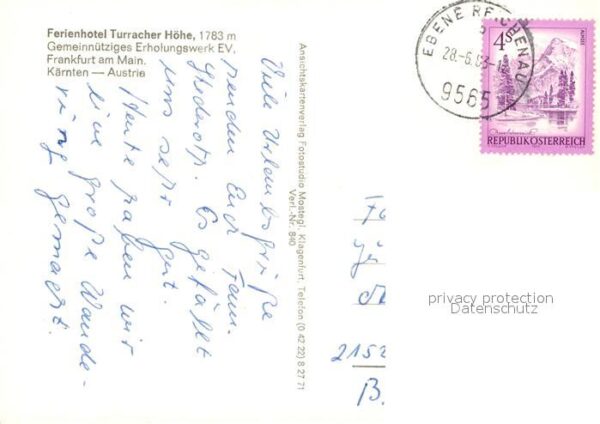 Ferienhotel Turracher Höhe, 1783 m
Gemeinnütziges Erholungswerk EV,
Frankfurt am Main.
Kärnten — Austria
Viele Urlaubsgrüße
senden Euch Fam.
Es gefällt
uns sehr gut.
Heute haben wir
eine große Wande-
rung gemacht.
Ansichtskartenverlag Fotostudio Mostegl, Klagenfurt, Telefon (0 42 22) 8 27 71
Verl.-Nr. 840
EBENE REICHENAU
9565
4S
ALMSEE
REPUBLIK ÖSTERREICH
2152
B.
privacy protection
Datenschutz